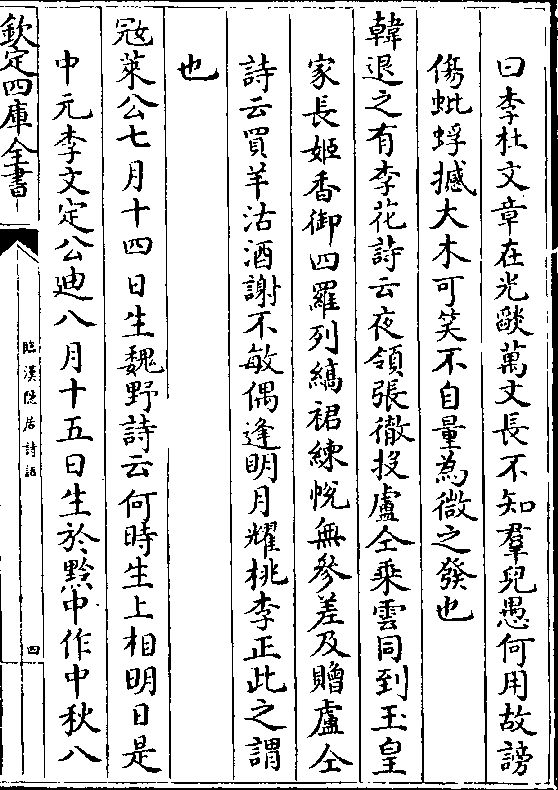 曰李杜文章在光燄萬丈長不知羣兒愚何用故謗
傷蚍蜉撼大木可笑不自量為微之發也
韓退之有李花詩云夜領張徹投盧仝乘雲同到玉皇
家長姬香御四羅列縞裙練帨無參差及贈盧仝
詩云買羊沽酒謝不敏偶逢明月耀桃李正此之謂
也
冦萊公七月十四日生魏野詩云何時生上相明日是
中元李文定公迪八月十五日生於黔中作中秋八
欽定四庫全書
臨漢隠居詩話
四